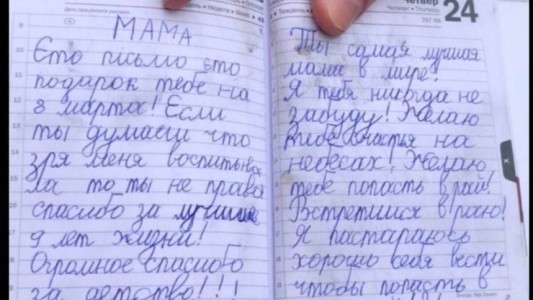 МАМА
Єто письмо єто
подарок тебе на
8 марта! Если
ты думаеш что
зря меня воспитыва
ла то ты не права
спасибо за лучшие
9 лет жизни!
Огромное спасибо
за детство!!!
четверг 24
Четверг • Thursday
Ты самая лучшая
мама в мире!
Я тебя никогда не
забуду! Желаю
тебе счастья на
небесах! Желаю
тебе попасть в рай!
Встретимся в раю!
Я пастараюсь
хорошо себя вести
чтобы попасть в